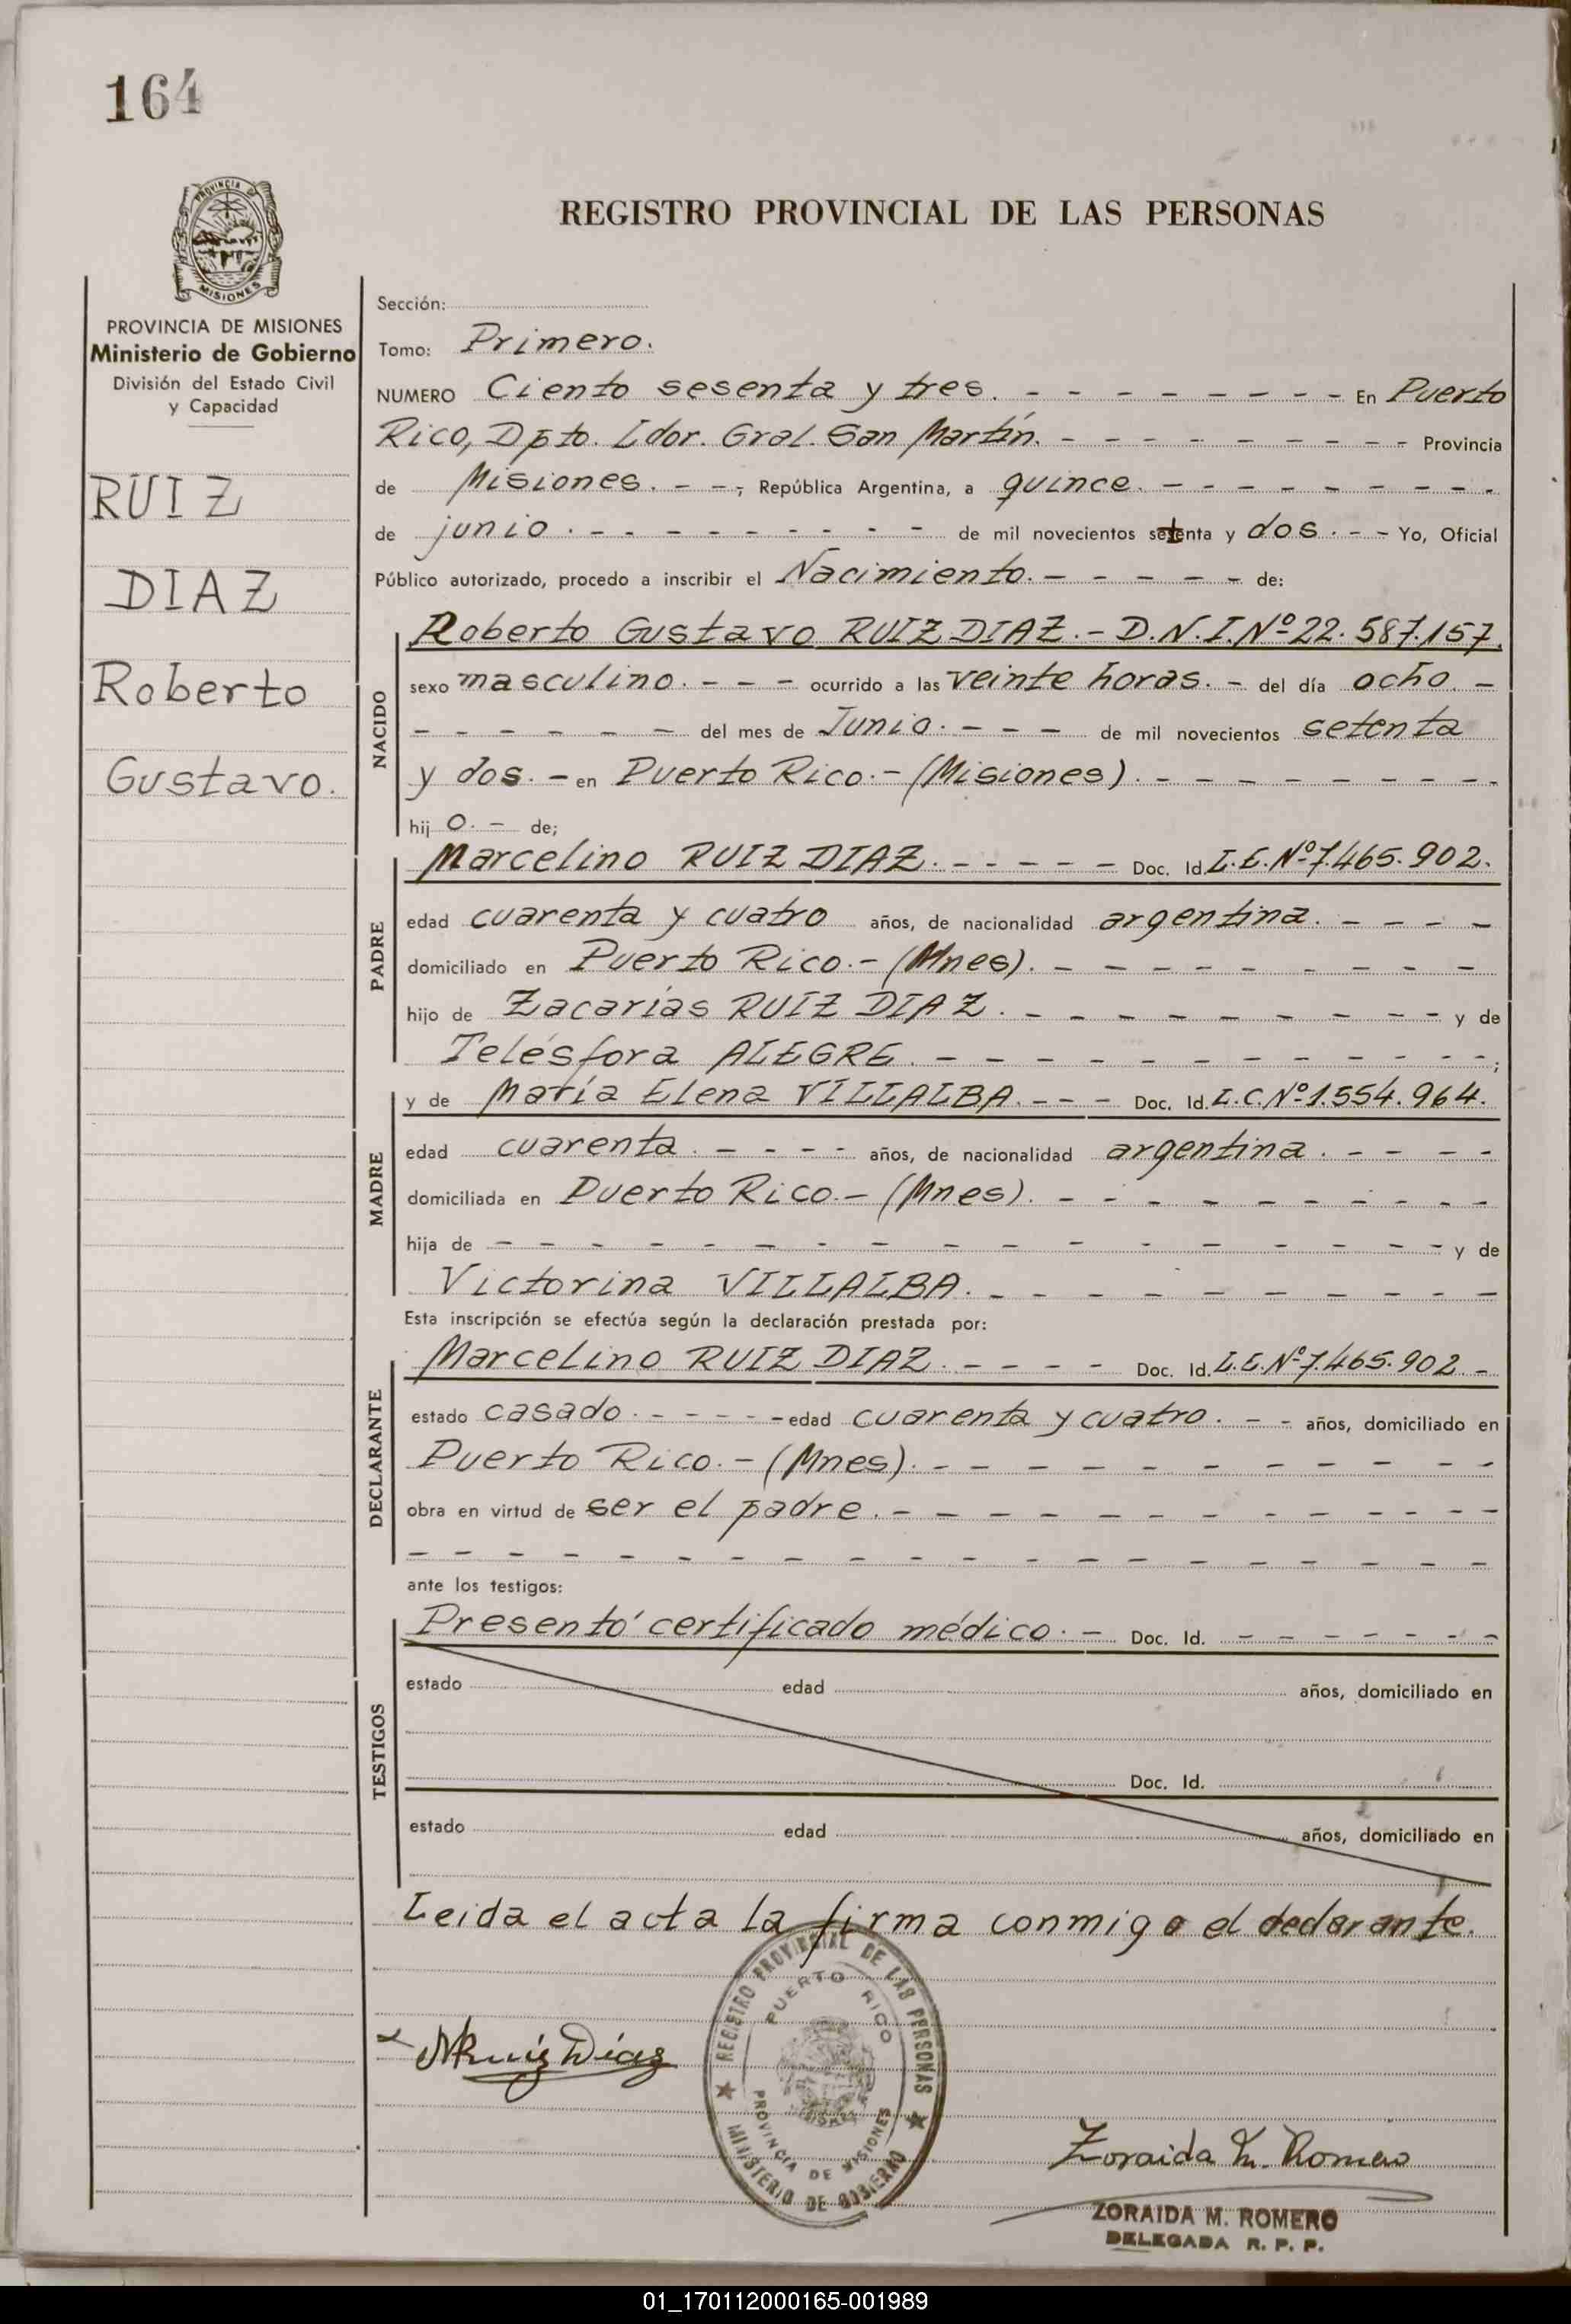 164
PROVINCIA DE
MISIONES
PROVINCIA DE MISIONES
Ministerio de Gobierno
División del Estado Civil
y Capacidad
RUIZ
DIAZ
Roberto
Gustavo.
REGISTRO PROVINCIAL DE LAS PERSONAS
Sección:
Tomo: Primero.
NUMERO Ciento sesenta y tres. - - - - - - - - En Puerto
Rico, Dpto. Ldor. Gral. San Martín. - - - - - - - - - Provincia
de Misiones. - -, República Argentina, a quince. - - - - - - - - -
de junio. - - - - - - - - - de mil novecientos setenta y dos. - - Yo, Oficial
Público autorizado, procedo a inscribir el Nacimiento. - - - - - de:
NACIDO
Roberto Gustavo RUIZ DIAZ.- D.N.I.Nº 22.587.157.
sexo masculino. - - - ocurrido a las veinte horas. - del día ocho. -
- - - - - - del mes de Junio. - - - de mil novecientos setenta
y dos. - en Puerto Rico.- (Misiones). - - - - - - - - -
hij o. - de;
PADRE
Marcelino RUIZ DIAZ. - - - - - Doc. Id. L.E.Nº 7.465.902.
edad cuarenta y cuatro años, de nacionalidad argentina. - - - -
domiciliado en Puerto Rico.- (Mnes). - - - - - - - - - -
hijo de Zacarías RUIZ DIAZ. - - - - - - - - - - y de
Telésfora ALEGRE. - - - - - - - - - - - - -;
MADRE
y de María Elena VILLALBA. - - - Doc. Id. L.C.Nº 1.554.964.
edad cuarenta. - - - - años, de nacionalidad argentina. - - - -
domiciliada en Puerto Rico.- (Mnes). - - - - - - - - - -
hija de - - - - - - - - - - - - - - - - y de
Victorina VILLALBA. - - - - - - - - - - -
Esta inscripción se efectúa según la declaración prestada por:
DECLARANTE
Marcelino RUIZ DIAZ. - - - - Doc. Id. L.E.Nº 7.465.902.-
estado casado. - - - - - edad cuarenta y cuatro. - - años, domiciliado en
Puerto Rico.- (Mnes). - - - - - - - - - - - -
obra en virtud de ser el padre. - - - - - - - - - - - -
- - - - - - - - - - - - - - - - - - - -
ante los testigos:
TESTIGOS
Presentó certificado médico. - Doc. Id. - - - - - - -
estado edad años, domiciliado en
Doc. Id.
estado edad años, domiciliado en
Leida el acta la firma conmigo el declarante.
REGISTRO PROVINCIAL DE LAS PERSONAS
PUERTO RICO
PROVINCIA DE MISIONES
MINISTERIO DE GOBIERNO
MRuiz Díaz
Zoraida M. Romero
ZORAIDA M. ROMERO
DELEGADA R. P. P.
01_170112000165-001989